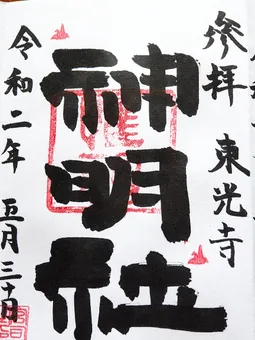 参拝 東光寺
神明社
令和二年 五月三十日